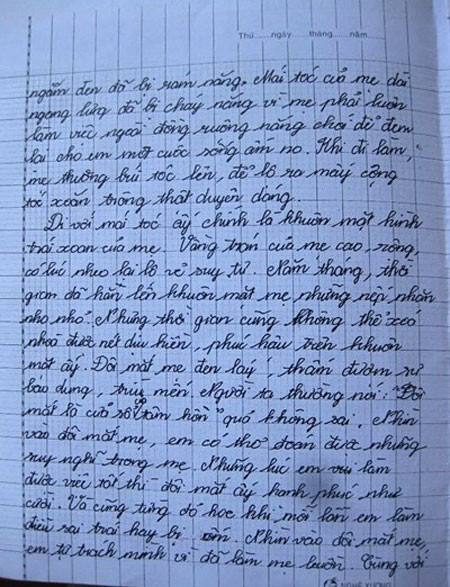 Thứ......ngày......tháng......năm......
ngăm đen đã bị rám nắng. Mái tóc của mẹ dài
ngang lưng đã bị cháy nắng vì mẹ phải luôn
làm việc ngoài đồng ruộng nắng chói để đem
lại cho em một cuộc sống ấm no. Khi đi làm,
mẹ thường búi tóc lên, để lộ ra mấy cộng
tóc xoăn trông thật duyên dáng.
Đi với mái tóc ấy chính là khuôn mặt hình
trái xoan của mẹ. Vầng trán của mẹ cao, rộng,
có lúc nheo lại lộ vẻ suy tư. Năm tháng, thời
gian đã hằn lên khuôn mặt mẹ những nếp nhăn
nho nhỏ. Nhưng thời gian cũng không thể xoá
nhoà được nét dịu hiền, phúc hậu trên khuôn
mặt ấy. Đôi mắt mẹ đen láy, thấm đượm sự
bao dung, trìu mến. Người ta thường nói: "Đôi
mắt là cửa sổ tâm hồn" quả không sai. Nhìn
vào đôi mắt mẹ, em có thể đoán được những
suy nghĩ trong mẹ. Những lúc em vui làm
được việc tốt thì đôi mắt ấy hạnh phúc như
cười. Và cũng từng đỏ hoe khi mỗi lần em làm
điều sai trái hay bị ốm. Nhìn vào đôi mắt mẹ,
em tự trách mình vì đã làm mẹ buồn. Cùng với
NGHỆ XƯƠNG